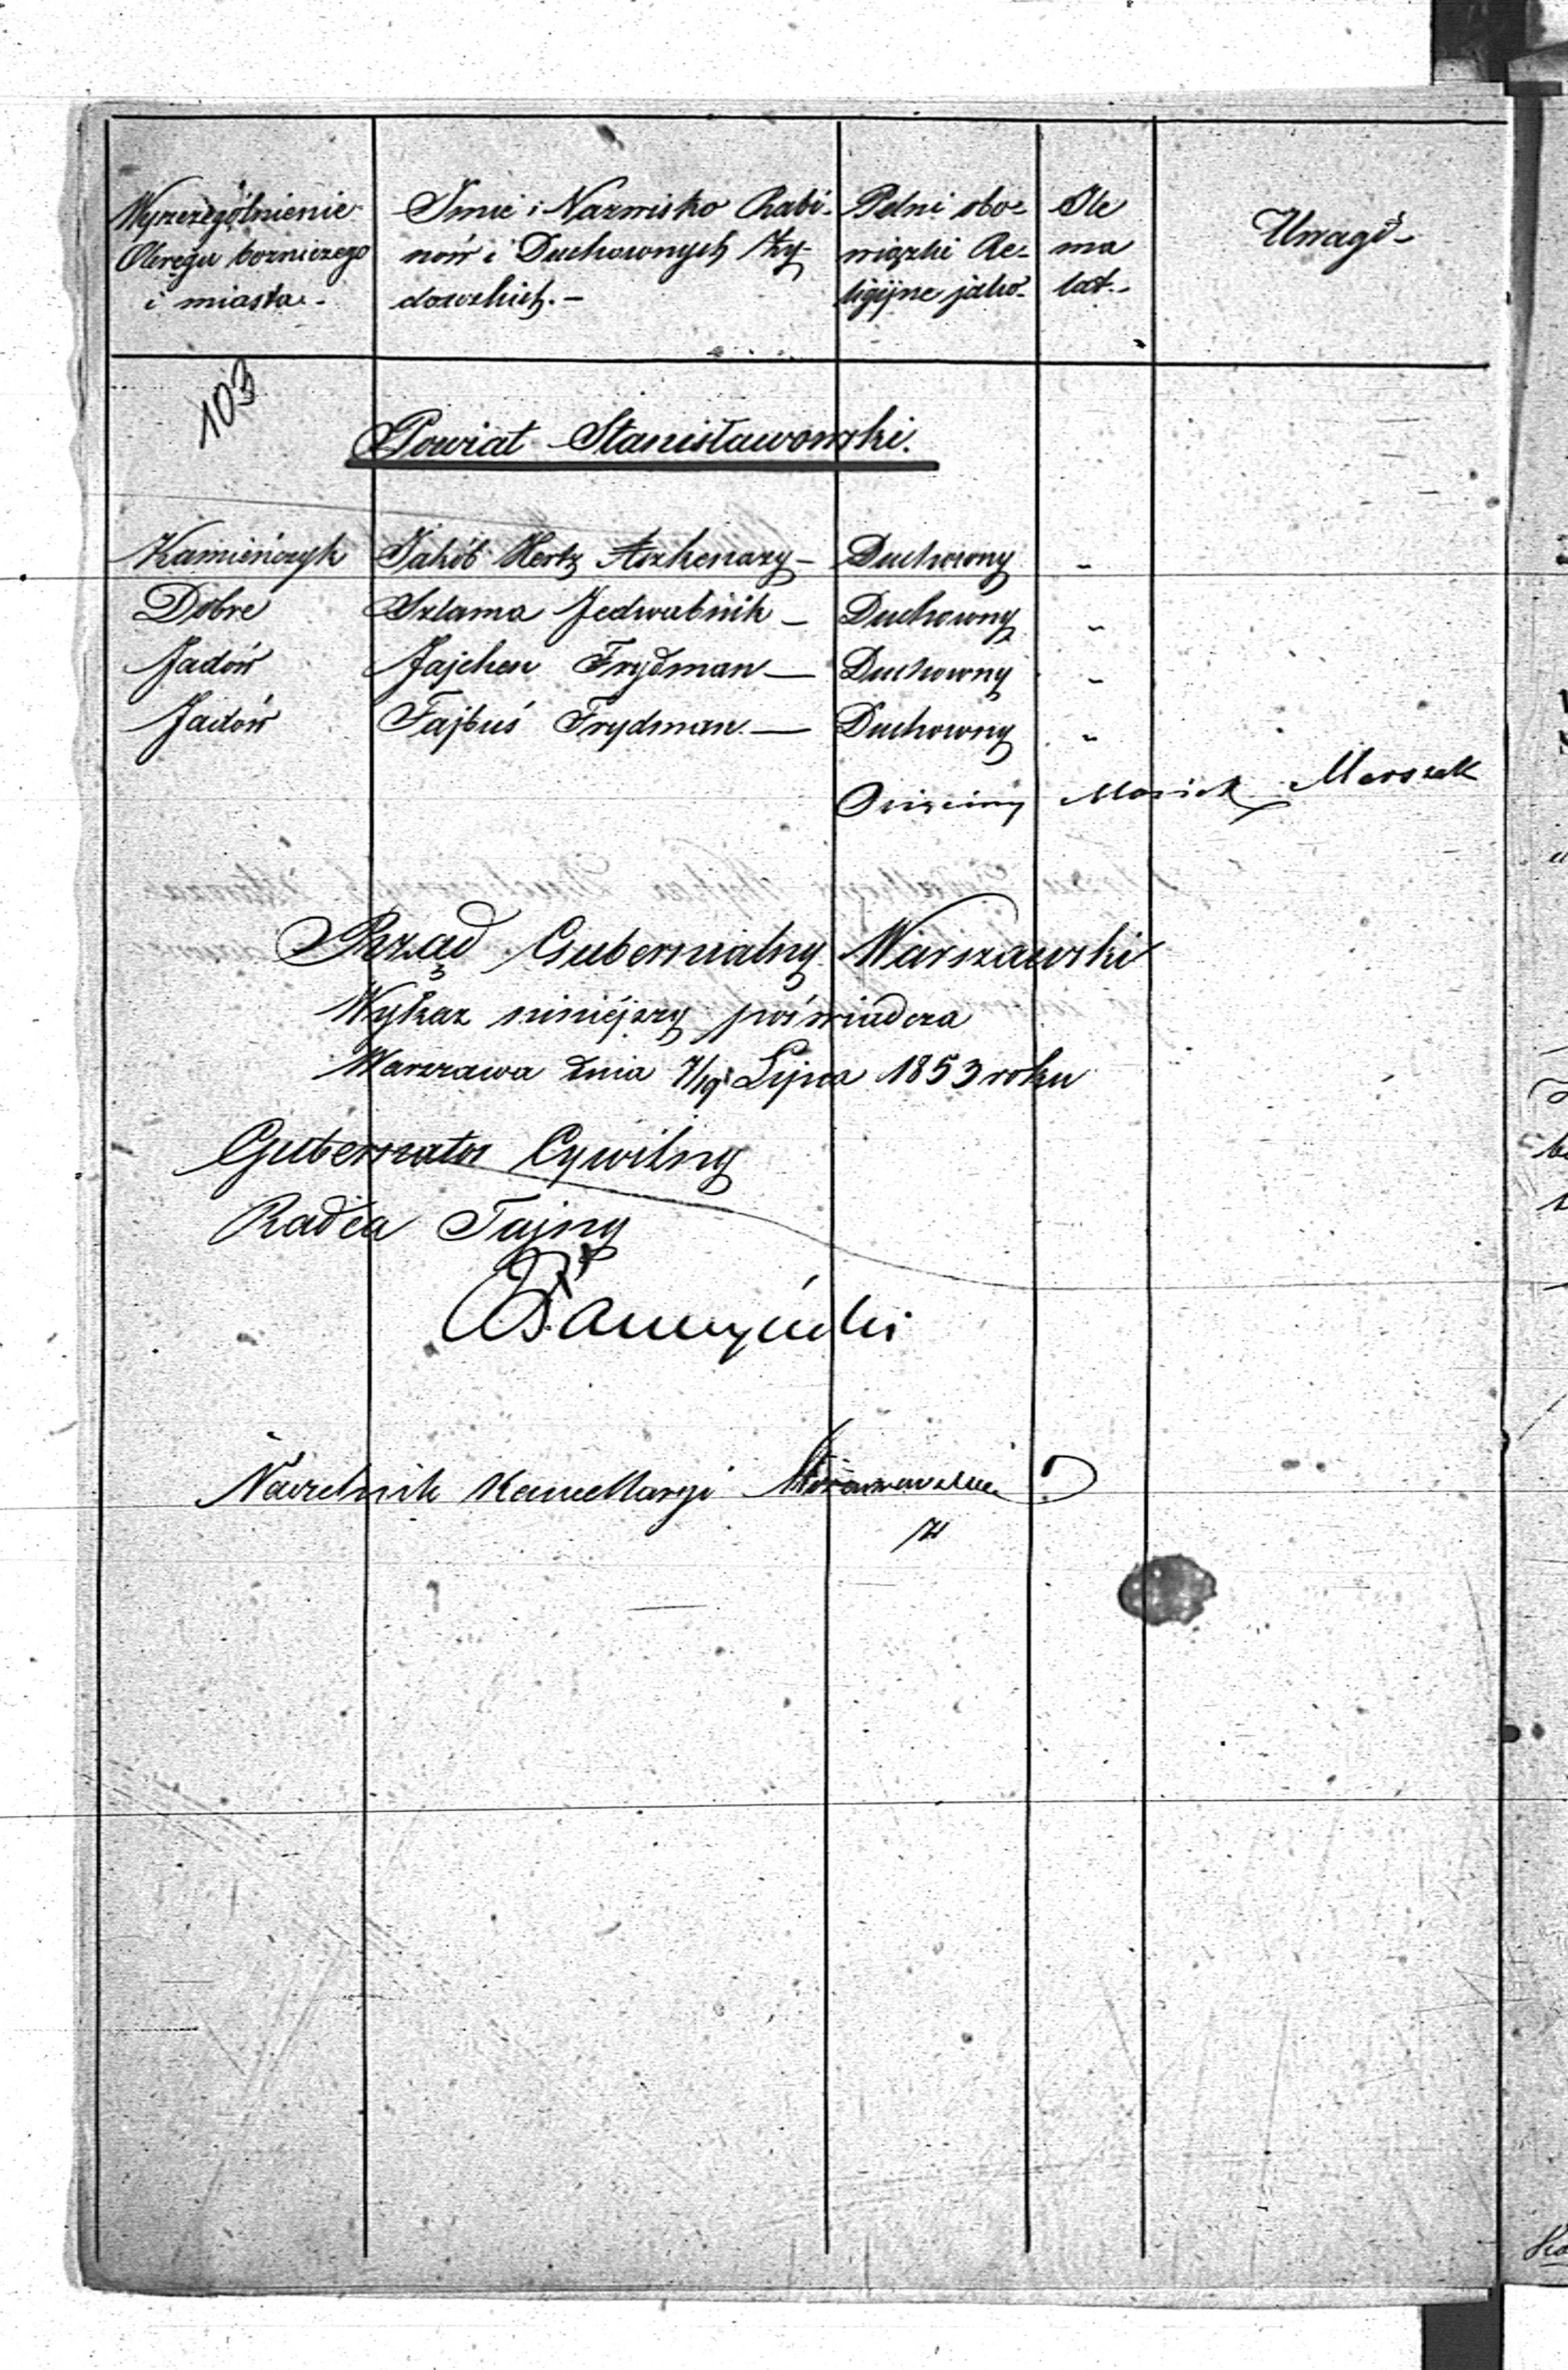 Wyszczególnienie Okręgu bożniczego i miasta.-
Imie i Nazwisko Rabi-
nów i Duchownych Ży-
dowskich.-
Pełni obo-
wiązki Re-
ligijne jako-
Ile
ma
lat.-
Uwagi-
103
Powiat Stanisławowski.
Kamieńczyk Jakób Hertz Aszkenazy - Duchowny "
Dobre Szlama Jedwabnik - Duchowny "
Jadów Jajchen Frydman - Duchowny "
Jadów Fajbuś Frydman. - Duchowny "
Rząd Gubernialny Warszawski
Wykaz niniéjszy poświadcza
Warszawa dnia 7/19 Lipca 1853 roku
Gubernator Cywilny
Radca Tajny
Naczelnik Kancellaryi